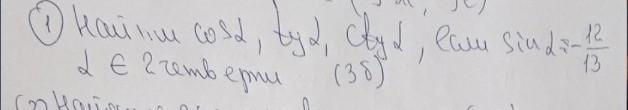 ① Найти cosα, tgα, ctgα, если sinα = -12/13
α ∈ 2 четверти (3б)
(2) Най